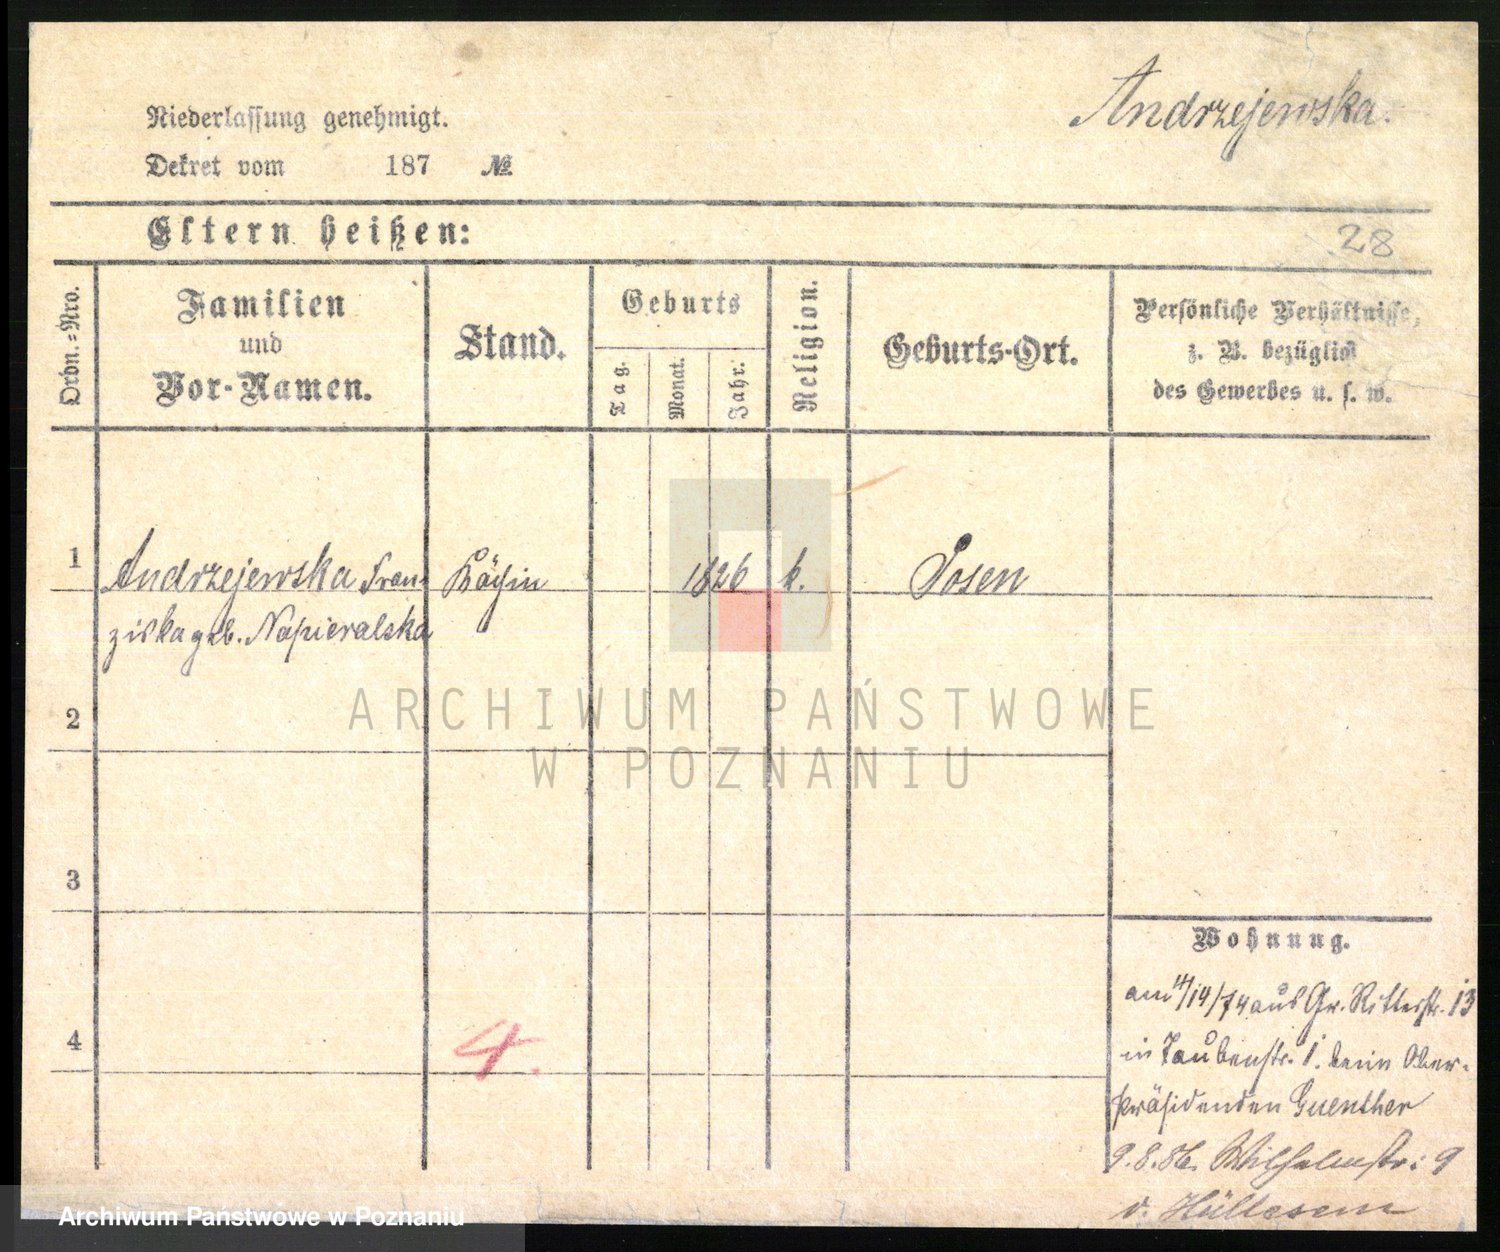 Andrzejewska.
Niederlassung genehmigt.
Dekret vom 187 №
Eltern heißen:
28
Ordn.-Nro.
Familien
und
Vor-Namen.
Stand.
Geburts
Tag.
Monat.
Jahr.
Religion.
Geburts-Ort.
Persönliche Verhältnisse,
z. B. bezüglich
des Gewerbes u. s. w.
1 Andrzejewska Fran- Köchin 1826 k. Posen
ziska geb. Napieralska
ARCHIWUM PAŃSTWOWE
W POZNANIU
2
3
4
4.
Wohnung.
am 4/14/74 aus Gr. Ritterstr. 13
in Taubenstr. 1. beim Ober-
präsidenden Guenther
9.8.86. Wilhelmstr: 9
v.
Archiwum Państwowe w Poznaniu